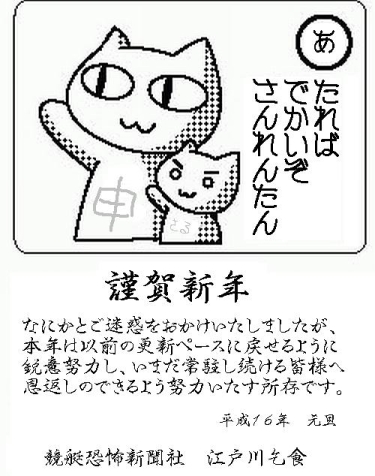 あ
たれば
でかいぞ
さんれんたん
申
さる
謹賀新年
なにかとご迷惑をおかけいたしましたが、
本年は以前の更新ペースに戻せるように
鋭意努力し、いまだ常駐し続ける皆様へ
恩返しのできるよう努力いたす所存です。
平成16年　元旦
競艇恐怖新聞社　江戸川乞食